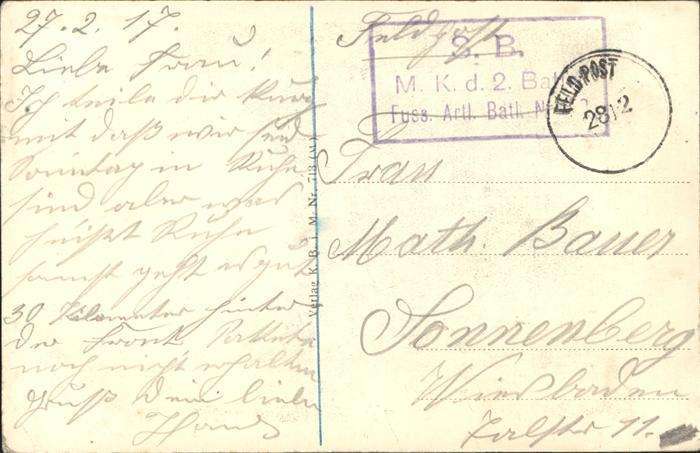 27.2.17.
Liebe Frau!
Ich teile dir kurz
mit daß wir seid
Sonntag in Ruhe
sind aber was
heißt Ruhe
sonst geht es gut
30 Kilometer hinter
der Front Packete
noch nicht erhalten
Gruß Dein lieber
Hans
Verlag K. B. i. M. Nr.
Feldpost
S. B.
M. K. d. 2. Batt.
Fuss. Artl. Batl. N
FELD-POST
28 12
Frau
Math. Bauer
Sonnenberg
Wiesbaden
Talstr 11.